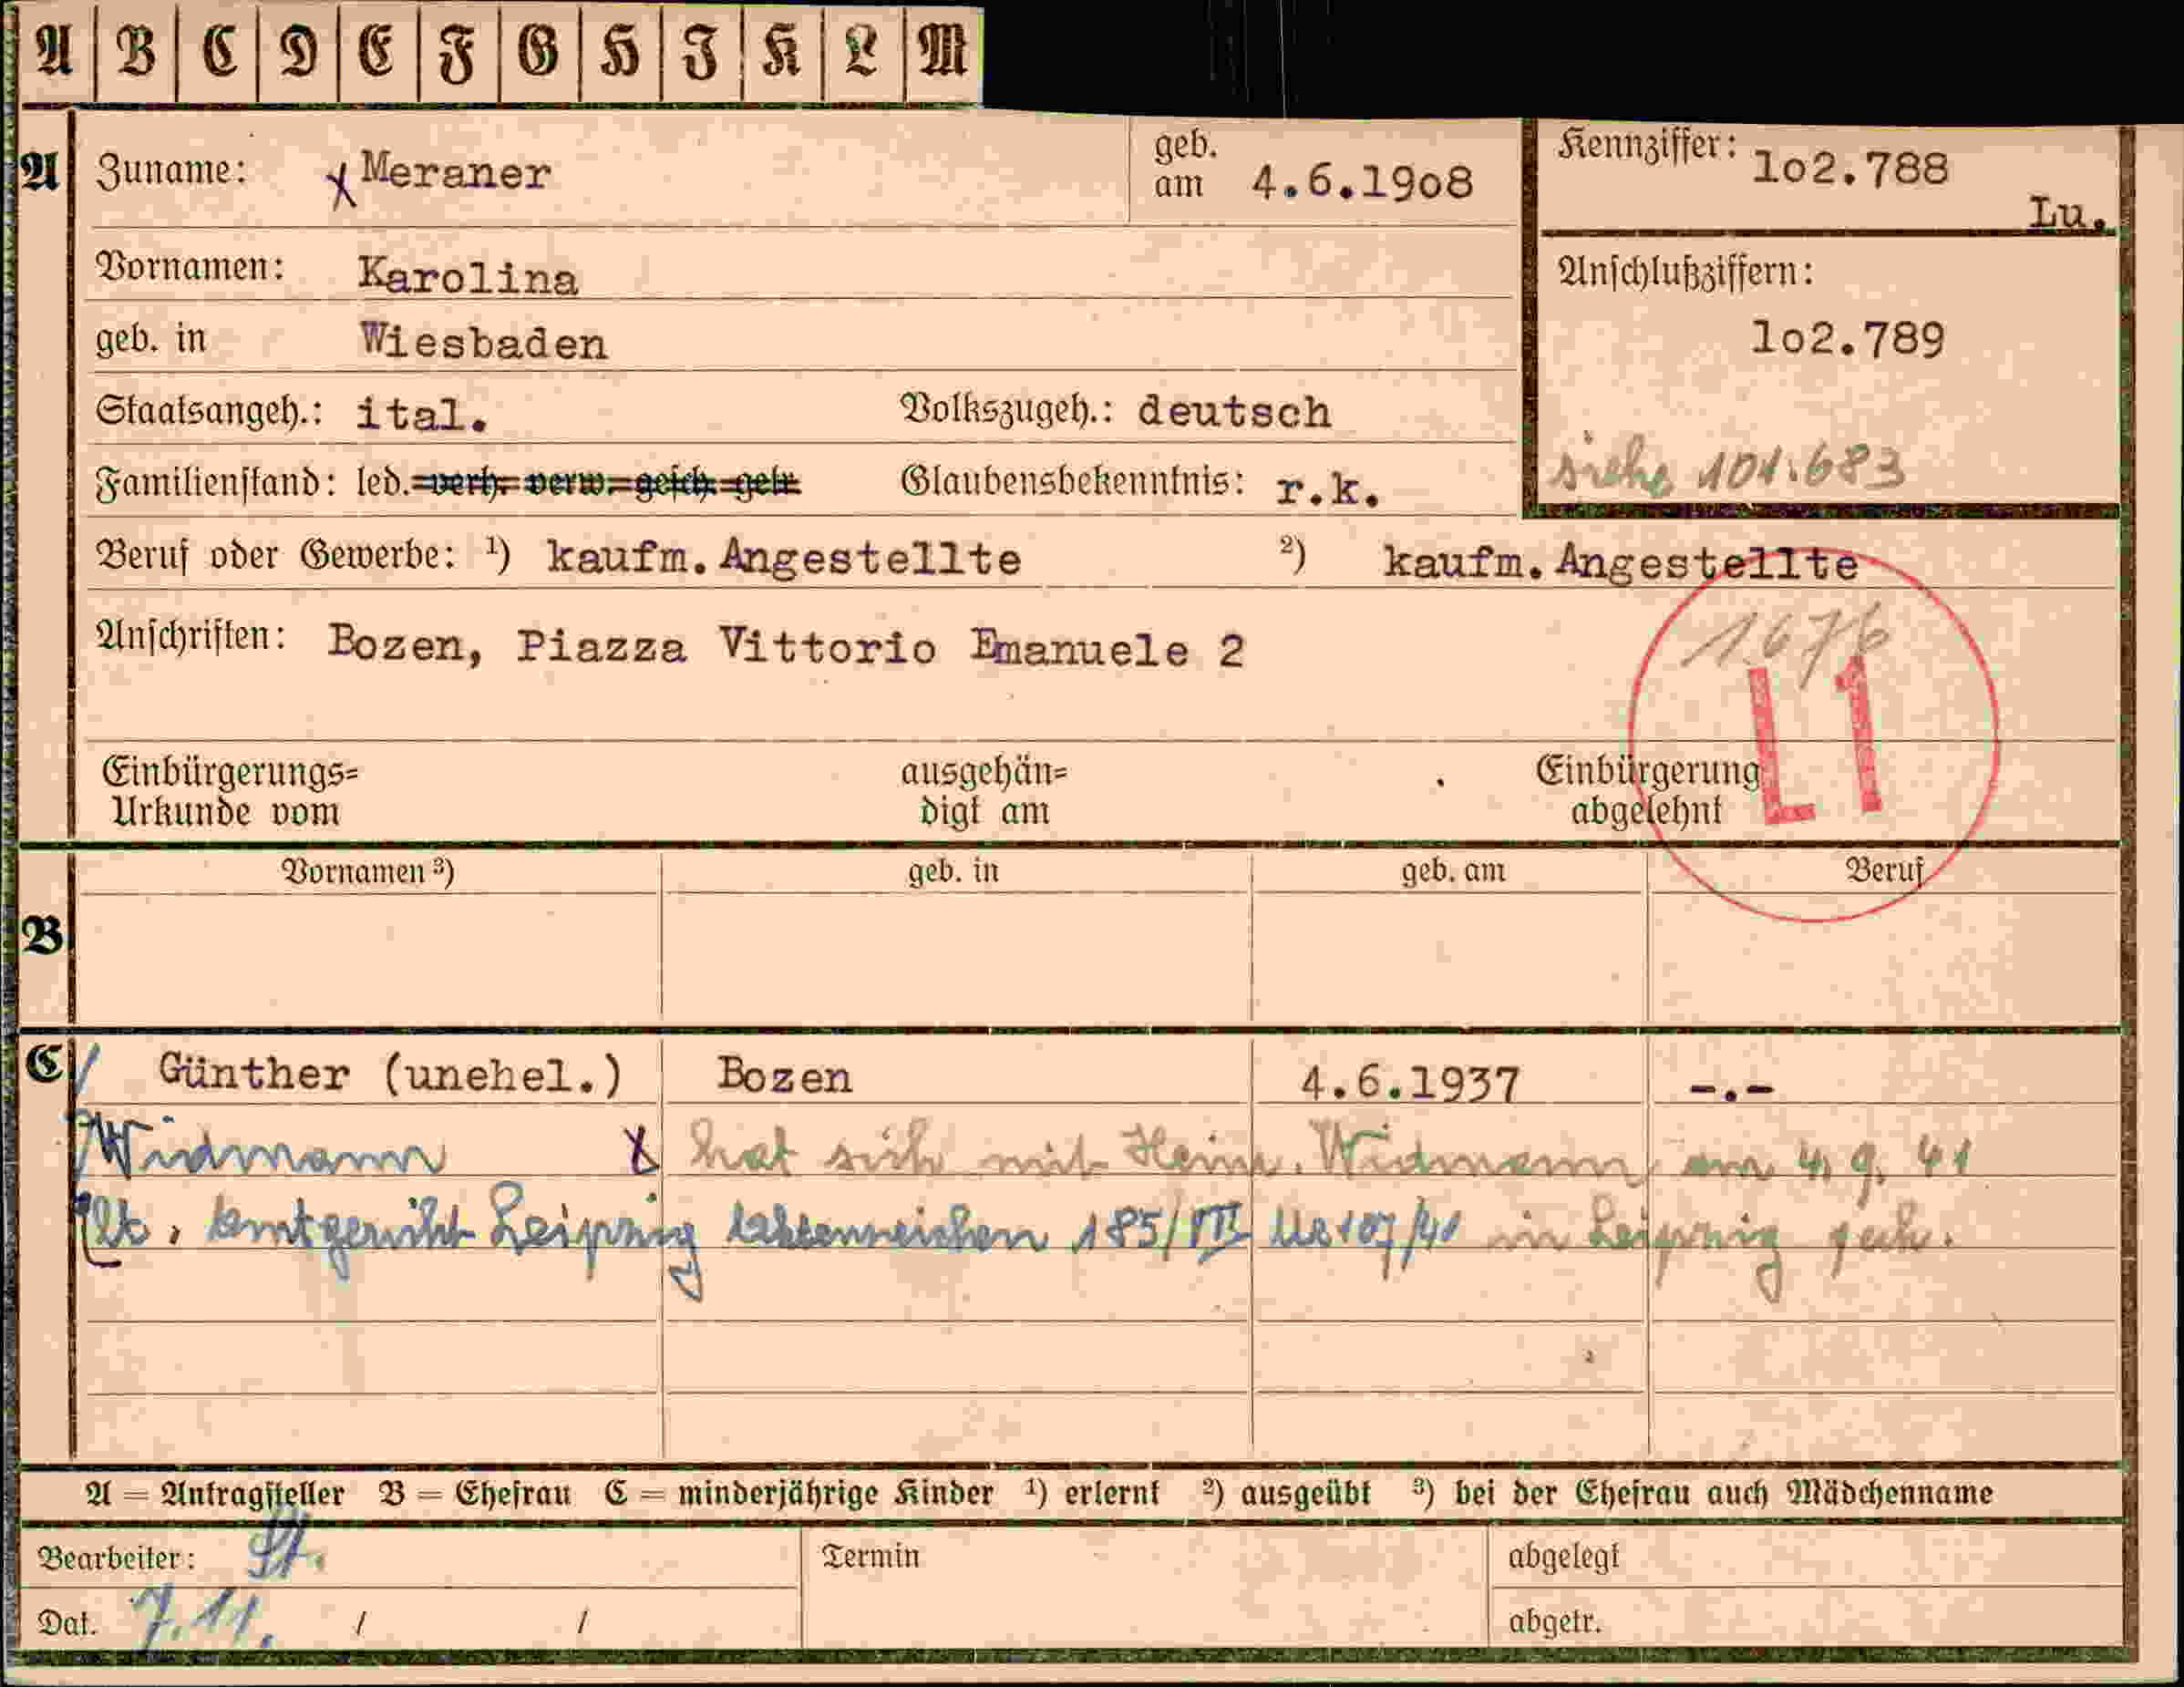 A B C D E F G H I K L M
A Zuname: x Meraner geb. am 4.6.19o8 Kennziffer: lo2.788
Lu.
Vornamen: Karolina Anschlußziffern:
geb. in Wiesbaden lo2.789
Staatsangeh.: ital. Volkszugeh.: deutsch
Familienstand: led. verh. verw. gesch. getr. Glaubensbekenntnis: r.k. siehe 101.683
Beruf oder Gewerbe: ¹) kaufm. Angestellte ²) kaufm. Angestellte
1676
Anschriften: Bozen, Piazza Vittorio Emanuele 2
L1
Einbürgerungs= ausgehän= Einbürgerung
Urkunde vom digt am abgelehnt
Vornamen ³) geb. in geb. am Beruf
B
C Günther (unehel.) Bozen 4.6.1937 -.-
Widmann x hat sich mit Heinr. Widmann am 4.9.41
lt. Amtgericht Leipzig Aktenzeichen 185/VIII 107/41 in Leipzig
A = Antragsteller B = Ehefrau C = minderjährige Kinder ¹) erlernt ²) ausgeübt ³) bei der Ehefrau auch Mädchenname
Bearbeiter: St. Termin abgelegt
Dat. 7.11. / / abgetr.